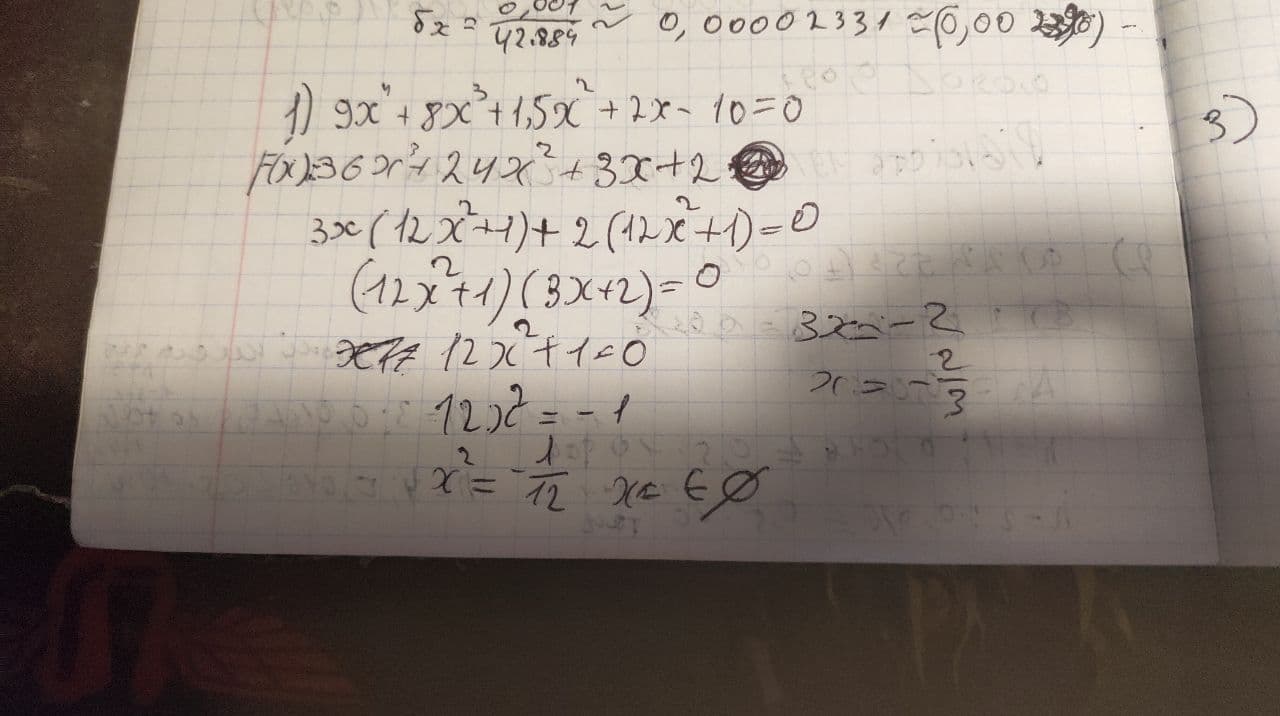 δx = 0,001/42.884 ≈ 0,00002331 ≈ (0,00
1) 9x⁴ + 8x³ + 1,5x² + 2x - 10 = 0
3)
F(x) = 36x³ + 24x² + 3x + 2
3x(12x² + 1) + 2(12x² + 1) = 0
(12x² + 1)(3x + 2) = 0
12x² + 1 = 0
3x = -2
x = -2/3
12x² = -1
x² = -1/12 x = ∈ ∅